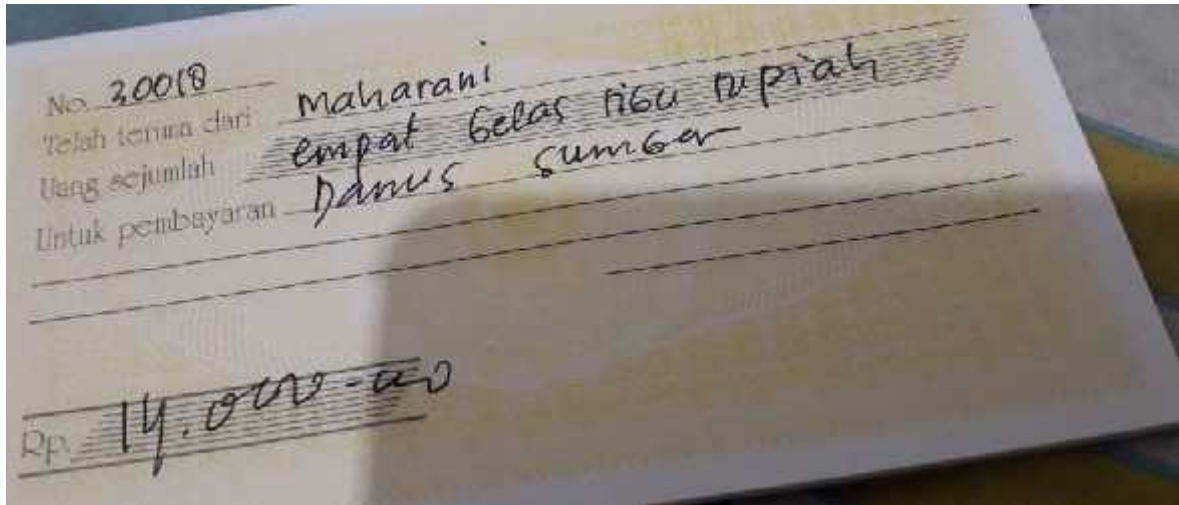 No. 30018
Telah terima dari maharani
Uang sejumlah empat belas ribu rupiah
Untuk pembayaran Danus sumbar
Rp. 14.000-00